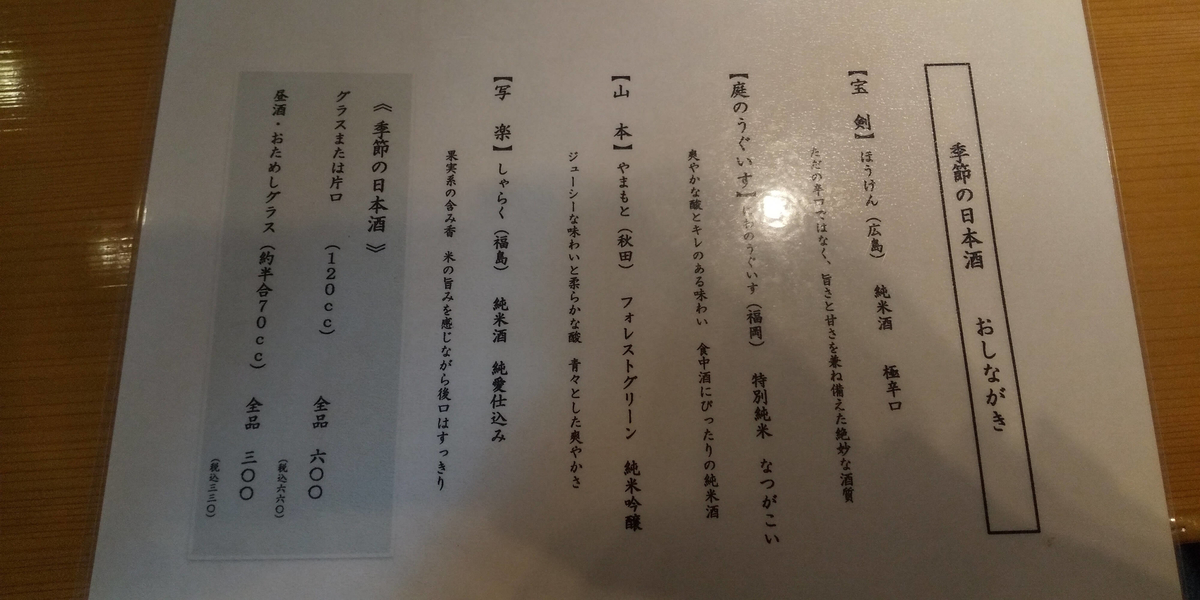 季節の日本酒　おしながき
【宝　剣】ほうけん（広島）　純米酒　極辛口
ただの辛口ではなく、旨さと甘さを兼ね備えた絶妙な酒質
【庭のうぐいす】にわのうぐいす（福岡）　特別純米　なつがこい
爽やかな酸とキレのある味わい　食中酒にぴったりの純米酒
【山　本】やまもと（秋田）　フォレストグリーン　純米吟醸
ジューシーな味わいと柔らかな酸　青々とした爽やかさ
【写　楽】しゃらく（福島）　純米酒　純愛仕込み
果実系の含み香　米の旨みを感じながら後口はすっきり
《季節の日本酒》
グラスまたは片口　（１２０ｃｃ）　全品　六〇〇
（税込六六〇）
昼酒・おためしグラス（約半合７０ｃｃ）　全品　三〇〇
（税込三三〇）